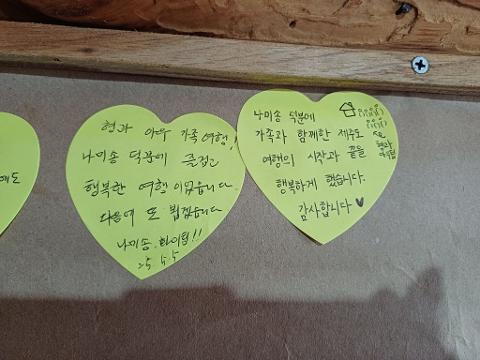 예도
형과 아우 가족여행!
나미송 덕분에 즐겁고
행복한 여행이었습니다.
다음에 또 뵙겠습니다
나미송 화이팅!!
25. 5. 5
나미송 덕분에
가족과 함께한 제주도
여행의 시작과 끝을
행복하게 했습니다.
감사합니다